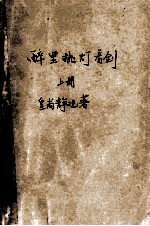 醉里挑灯看剑
上册
皇甫静
著